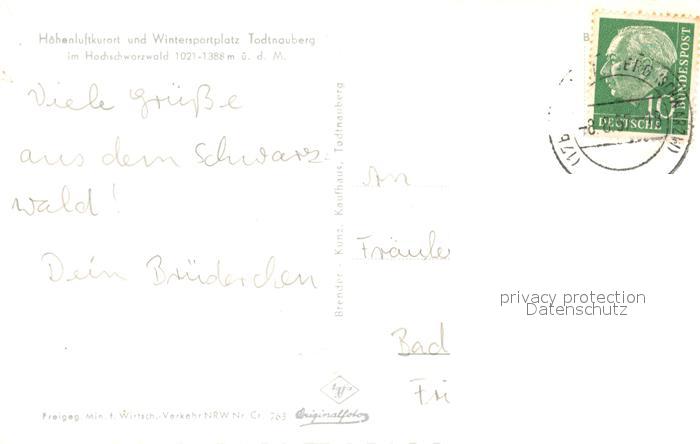 Höhenluftkurort und Wintersportplatz Todtnauberg
im Hochschwarzwald 1021-1388 m ü. d. M.
Viele Grüße
aus dem Schwarz-
wald!
Dein Brüderchen
Brender-Kunz, Kaufhaus, Todtnauberg
An
Fräule
Bad
Fri
DEUTSCHE
BUNDESPOST
10
privacy protection
Datenschutz
Agfa
Freigeg. Min. f. Wirtsch.-Verkehr NRW Nr. Cr. 763
Originalfoto